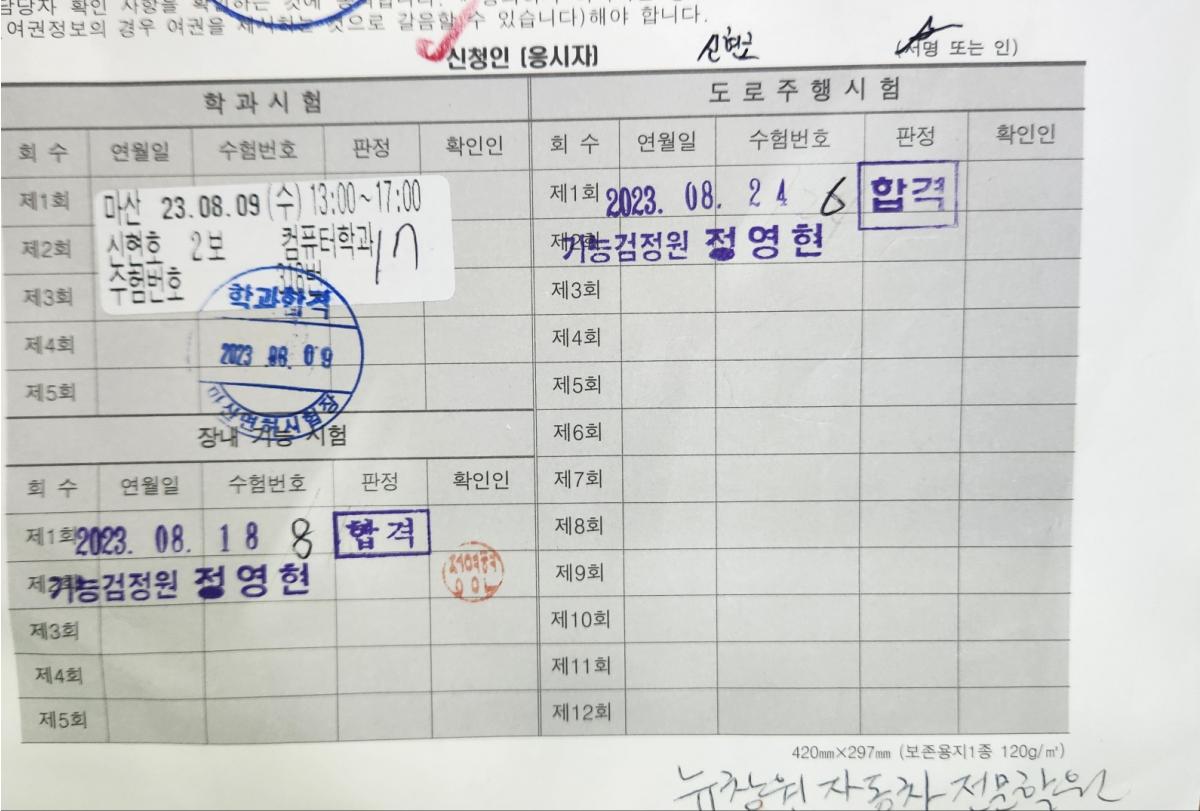 담당자 확인 사항을 확인하는 것에 동의합니다.
여권정보의 경우 여권을 제시하는 것으로 갈음할 수 있습니다)해야 합니다.
신청인 (응시자) 신현호 (서명 또는 인)
학 과 시 험
회 수 연월일 수험번호 판정 확인인
제1회
제2회
제3회
제4회
제5회
마산 23.08.09 (수) 13:00~17:00
신현호 2보 컴퓨터학과 17
수험번호 318번
학과합격
2023.08.09
마산면허시험장
장내 기능 시험
회 수 연월일 수험번호 판정 확인인
제1회 2023. 08. 18 8 합격
제2회 기능검정원 정영현
제3회
제4회
제5회
도 로 주 행 시 험
회 수 연월일 수험번호 판정 확인인
제1회 2023. 08. 24 6 합격
제2회 기능검정원 정영현
제3회
제4회
제5회
제6회
제7회
제8회
제9회
제10회
제11회
제12회
420㎜×297㎜ (보존용지1종 120g/㎡)
뉴창원자동차전문학원